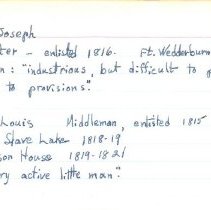 Joseph
ter - enlisted 1816. Ft. Wedderburn
n: "industrious, but difficult to
to provisions."
Louis Middleman, enlisted 1815
Slave Lake 1818-19
son House 1819-1821
ry active little man".